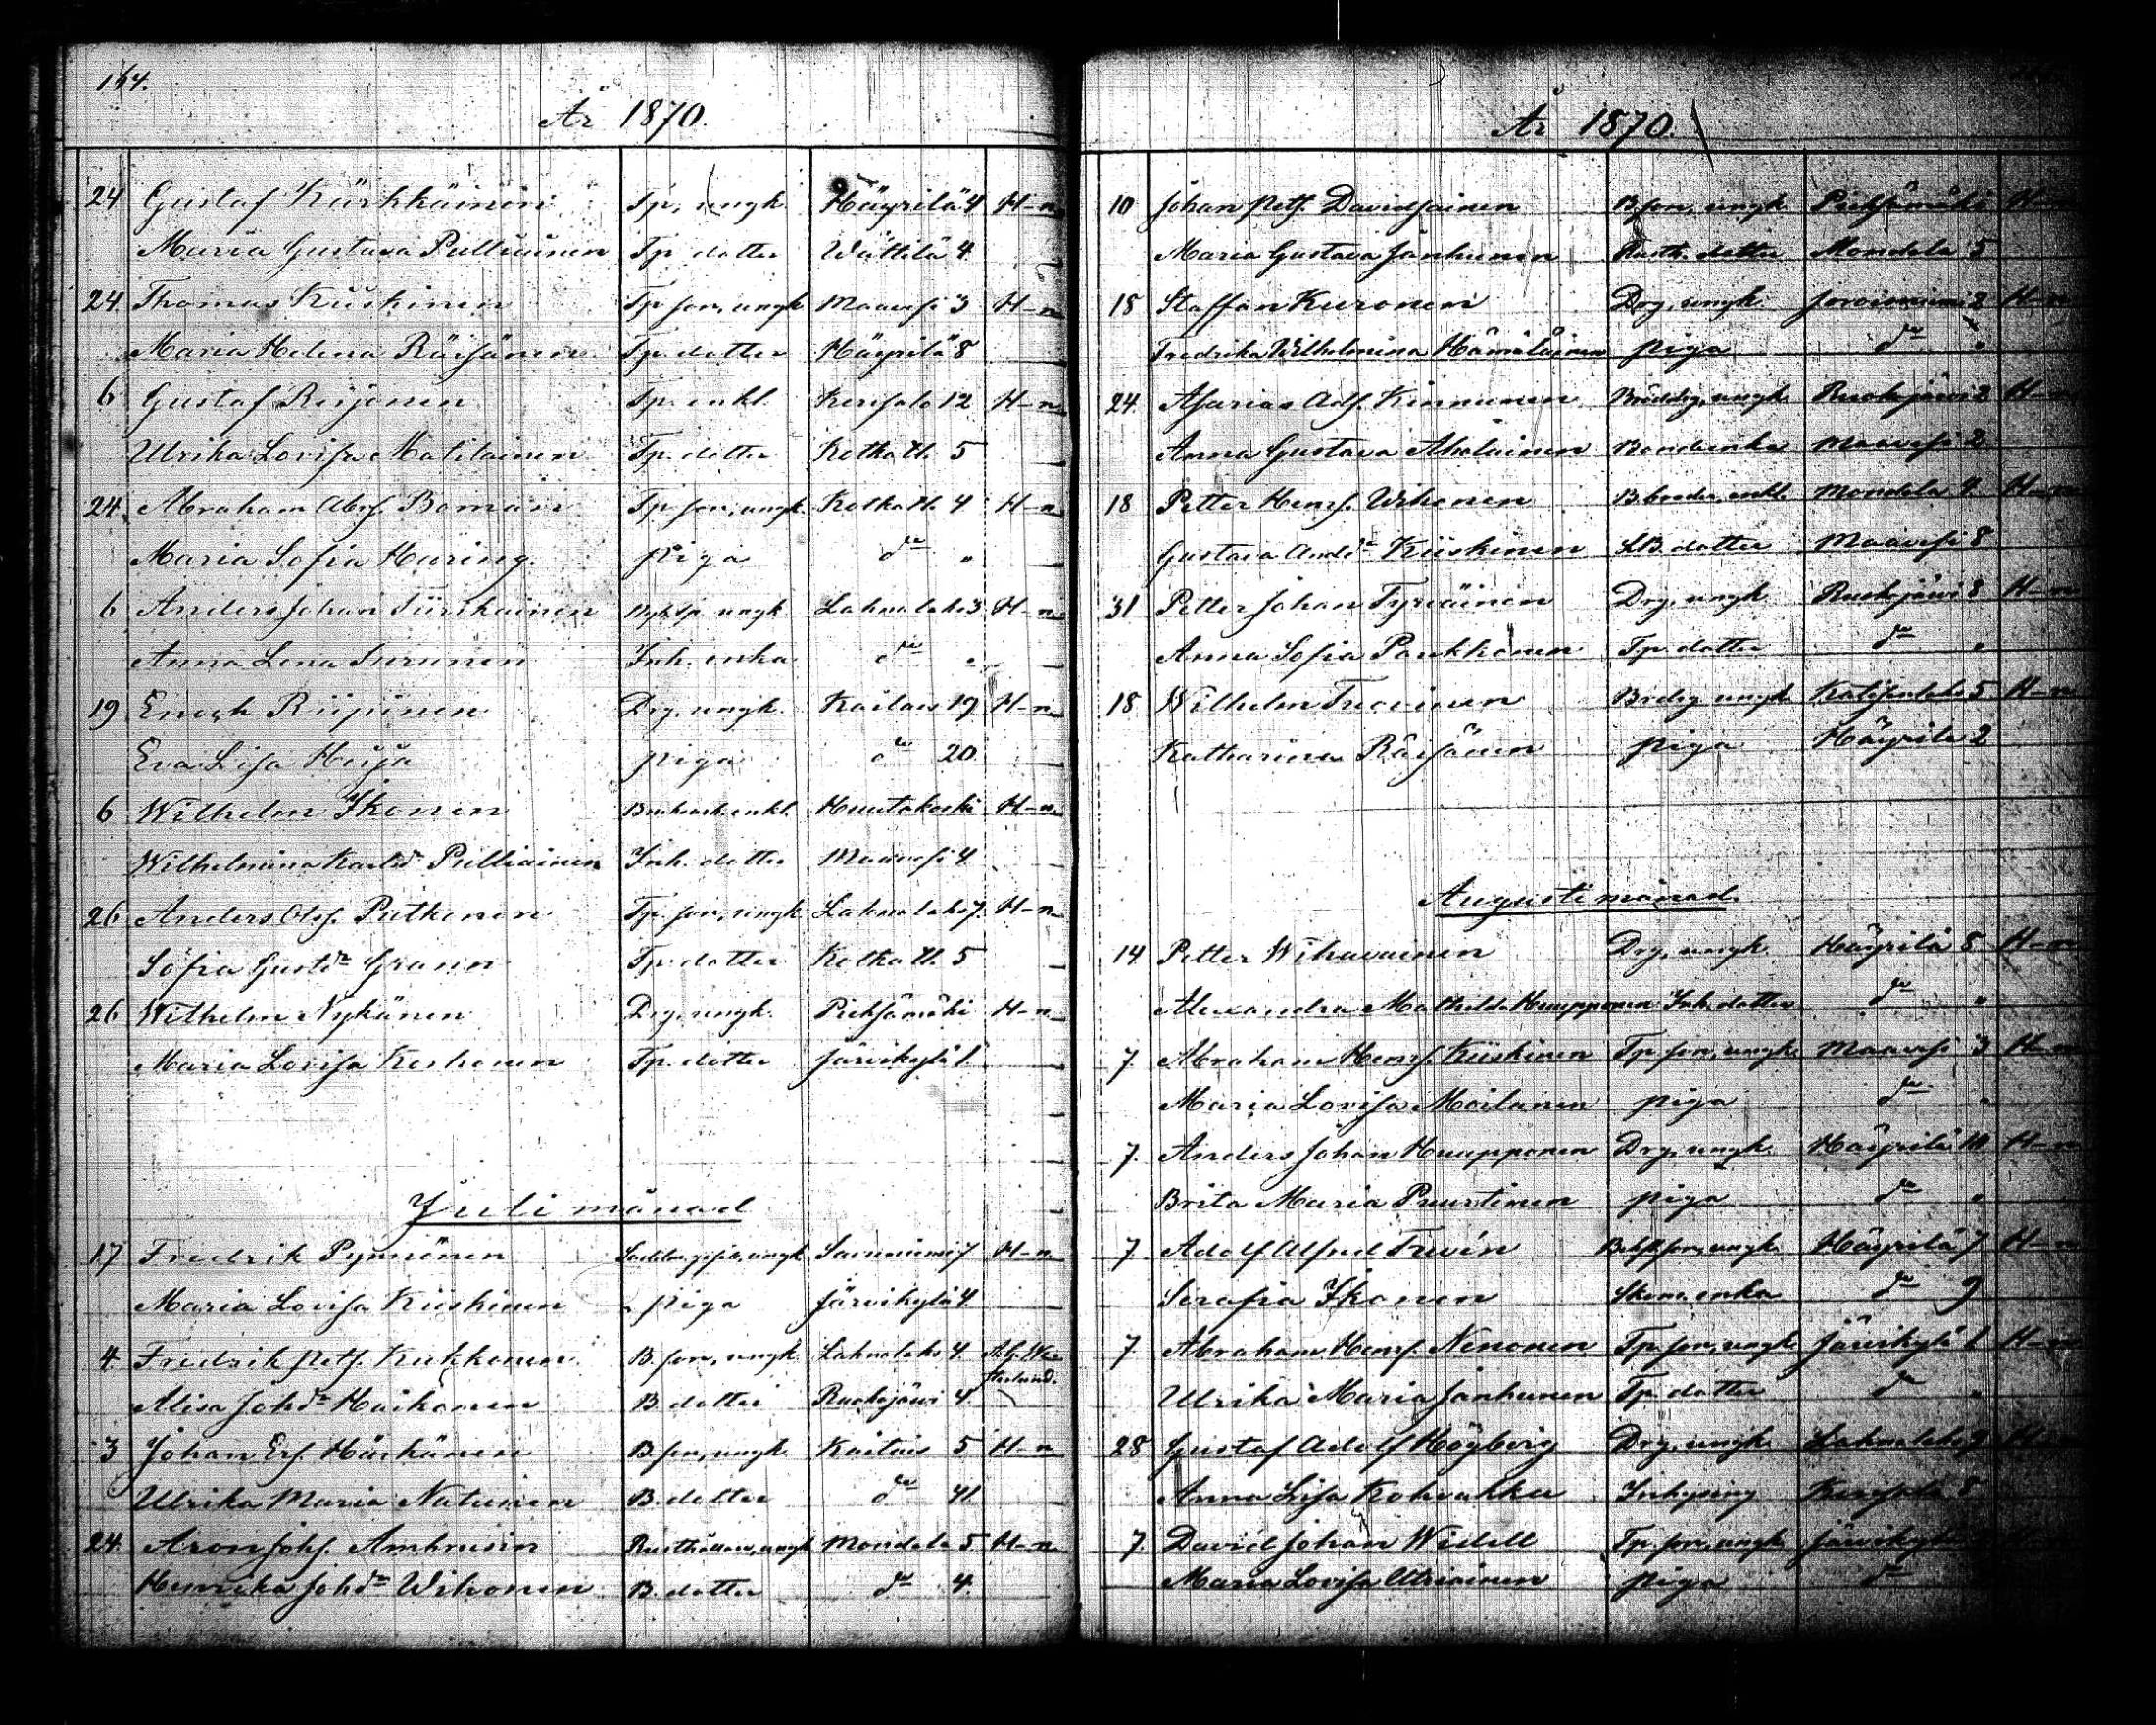 164.
År 1870.
24 Gustaf Kärkkäinen Tp. ungk. Häyrilä 4 H-n
Maria Gustava Pulliainen Tp. dotter Wättilä 4
24. Thomas Kiiskinen Tp. son, ungk. Maavesi 3 H-n
Maria Helena Räisänen Tp. dotter Häyrilä 8
6 Gustaf Reijonen Tp. enkl. Kerisalo 12 H-n
Ulrika Lovisa Matilainen Tp. dotter Kotkath. 5
24. Abraham Abrs. Boman Tp. son, ungk. Kotkath. 4 H-n
Maria Sofia Häring piga do "
6 Anders Johan Tiirikainen ungk. Lahnalaks 3 H-n
Anna Lena Surunen Inh. enka do "
19 Enock Riipinen Drg. ungk. Kaitais 19 H-n
Eva Lisa Heija piga do 20
6 Wilhelm Ikonen enkl. Huutokoski H-n
Wilhelmina Karlsdr Pulliainen Inh. dotter Maavesi 4
26 Anders Ols. Putkonen Tp. son, ungk. Lahnalaks 7. H-n
Sofia Gustdr Grann Tp. dotter Kotkath. 5
26 Wilhelm Nykänen Drg. ungk. Pieksämäki H-n
Maria Lovisa Korhonen Tp. dotter Järvikylä 1
Juli månad
17 Fredrik Pynnönen ungk. Savuniemi 7 H-n
Maria Lovisa Kiiskinen piga Järvikylä 4.
4. Fredrik Pets. Kukkonen B. son, ungk. Lahnalaks 4.
Alisa Johdr Haikonen B. dotter Ruokojärvi 4.
3 Johan Ers. Härkänen B. son, ungk. Kaitais 5 H-n
Ulrika Maria Natunen B. dotter do 41.
24. Aron Johs. Ambrusin ungk. Mondola 5 H-n
Henrika Johdr Wihonen B. dotter do 4.
År 1870.
10 Johan Pets. Davidsainen B. son, ungk. Pieksämäki H-n
Maria Gustava Janhunen Rusth. dotter Mondola 5
18 Staffan Kuronen Drg. ungk. Joroisniemi 2 H-n
Fredrika Wilhelmina Hämäläinen piga do "
24. Asarias Ads. Kinnunen ungk. H-n
Anna Gustava Aholainen Bondenka Maavesi 2
18 Petter Henrs. Wihonen B. broder, enkl. Mondola 4 H-n
Gustava Anddr Kiiskinen B. dotter Maavesi 8
31 Petter Johan Tyriäinen Drg. ungk. Ruokojärvi 8 H-n
Anna Sofia Paukkonen Tp. dotter do "
18 Wilhelm ungk. 5 H-n
Katharina Räisänen piga Häyrilä 2
Augusti månad.
14 Petter Wihavainen Drg. ungk. Häyrilä 8 H-n
Alexandra Mathilda Huupponen Inh. dotter do "
7. Abraham Henrs. Kiiskinen Tp. son, ungk. Maavesi 3 H-n
Maria Lovisa Moilanen piga do "
7. Anders Johan Huupponen Drg. ungk. Häyrilä 10 H-n
Brita Maria Puurtinen piga do "
7 Adolf Alfred Trewén ungk. Häyrilä 7 H-n
Serafia Ikonen enka do 9
7. Abraham Henrs. Nenonen Tp. son, ungk. Järvikylä 6 H-n
Ulrika Maria Janhunen Tp. dotter do "
28 Gustaf Adolf Högberg Drg. ungk. Lahnalaks
Anna Lisa Kohvakka Inhysing Kerisalo 8
7. David Johan Widell Tp. son, ungk. Järvikylä
Maria Lovisa Utriainen piga do